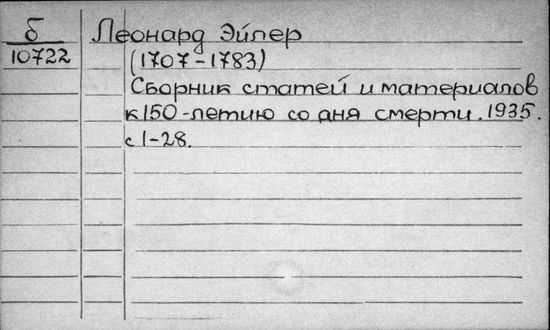 Б Леонард Эйлер
10722 (1707-1783)
Сборник статей и материалов
к 150-летию со дня смерти. 1935.
с 1-28.